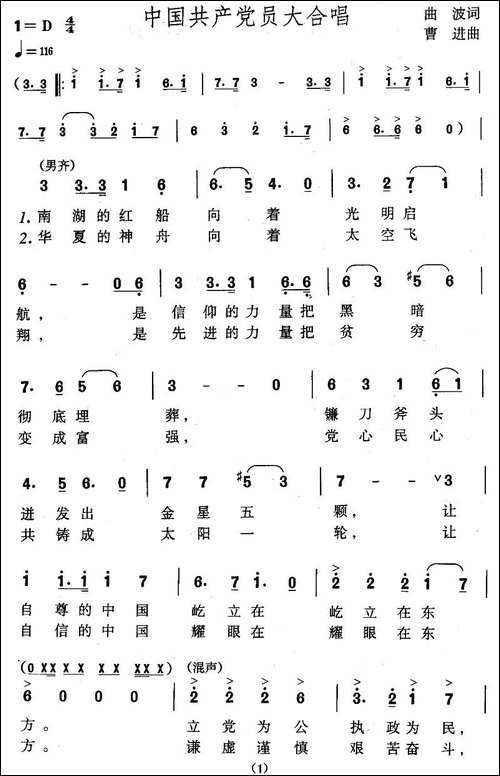 中国共产党员大合唱
1=D 4/4
♩=116
曲 波词
曹 进曲
(3.3 ‖: i i.i i i.i | 7.7 3 3 - | i i.i i i.i |
7.7 3 3.3 2 i.7 | 6 3 2 i.7 | 6 6.6 6 0) |
(男齐)
3 3.3 1 6 | 6.5 4.0 | 3.2 7 1 |
1.南 湖的红 船 向 着 光 明启
2.华 夏的神 舟 向 着 太 空飞
6 - - 0 6 | 3 3.3 1 1 6.6 | 6 3 #5 6 |
航, 是 信 仰的力 量把 黑 暗
翔, 是 先 进的力 量把 贫 穷
7. 6 5 6 | 3 - - 0 | 3 1 3 6 1 |
彻 底埋 葬, 镰 刀 斧 头
变 成富 强, 党 心 民 心
4. 5 6. 0 | 7 7 #5 3 | 7 - - ∨ 3 |
迸 发出 金 星 五 颗, 让
共 铸成 太 阳 一 轮, 让
i i.i i 7 | 6. 7 i. 0 | 2 2 2 i 7 |
自 尊的中 国 屹 立在 屹 立 在 东
自 信的中 国 耀 眼在 耀 眼 在 东
(0 XX XX XX X XX X) (混声)
6 0 0 0 | 2 2 2 6 | 3 3 2 3 |
方。 立 党 为 公 执 政 为 民,
方。 谦 虚 谨 慎 艰 苦 奋 斗,
(1)